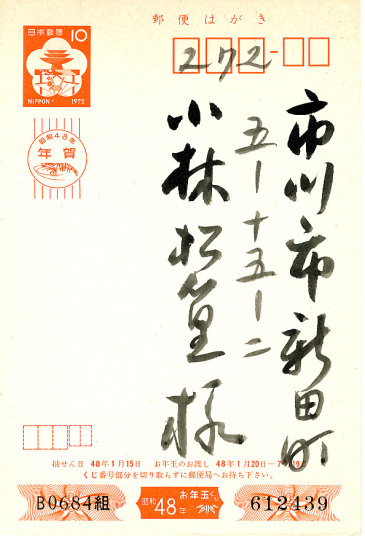 郵便はがき
日本郵便 10
NIPPON 1973
昭和48年
年賀
272
市川市新田町
五ー十五ー二
小林松篁様
抽せん日 48年1月15日 お年玉のお渡し 48年1月20日ー7月19
くじ番号部分を切り取らずに郵便局へお持ち下さい。
B0684組
昭和48年
お年玉くじ
612439